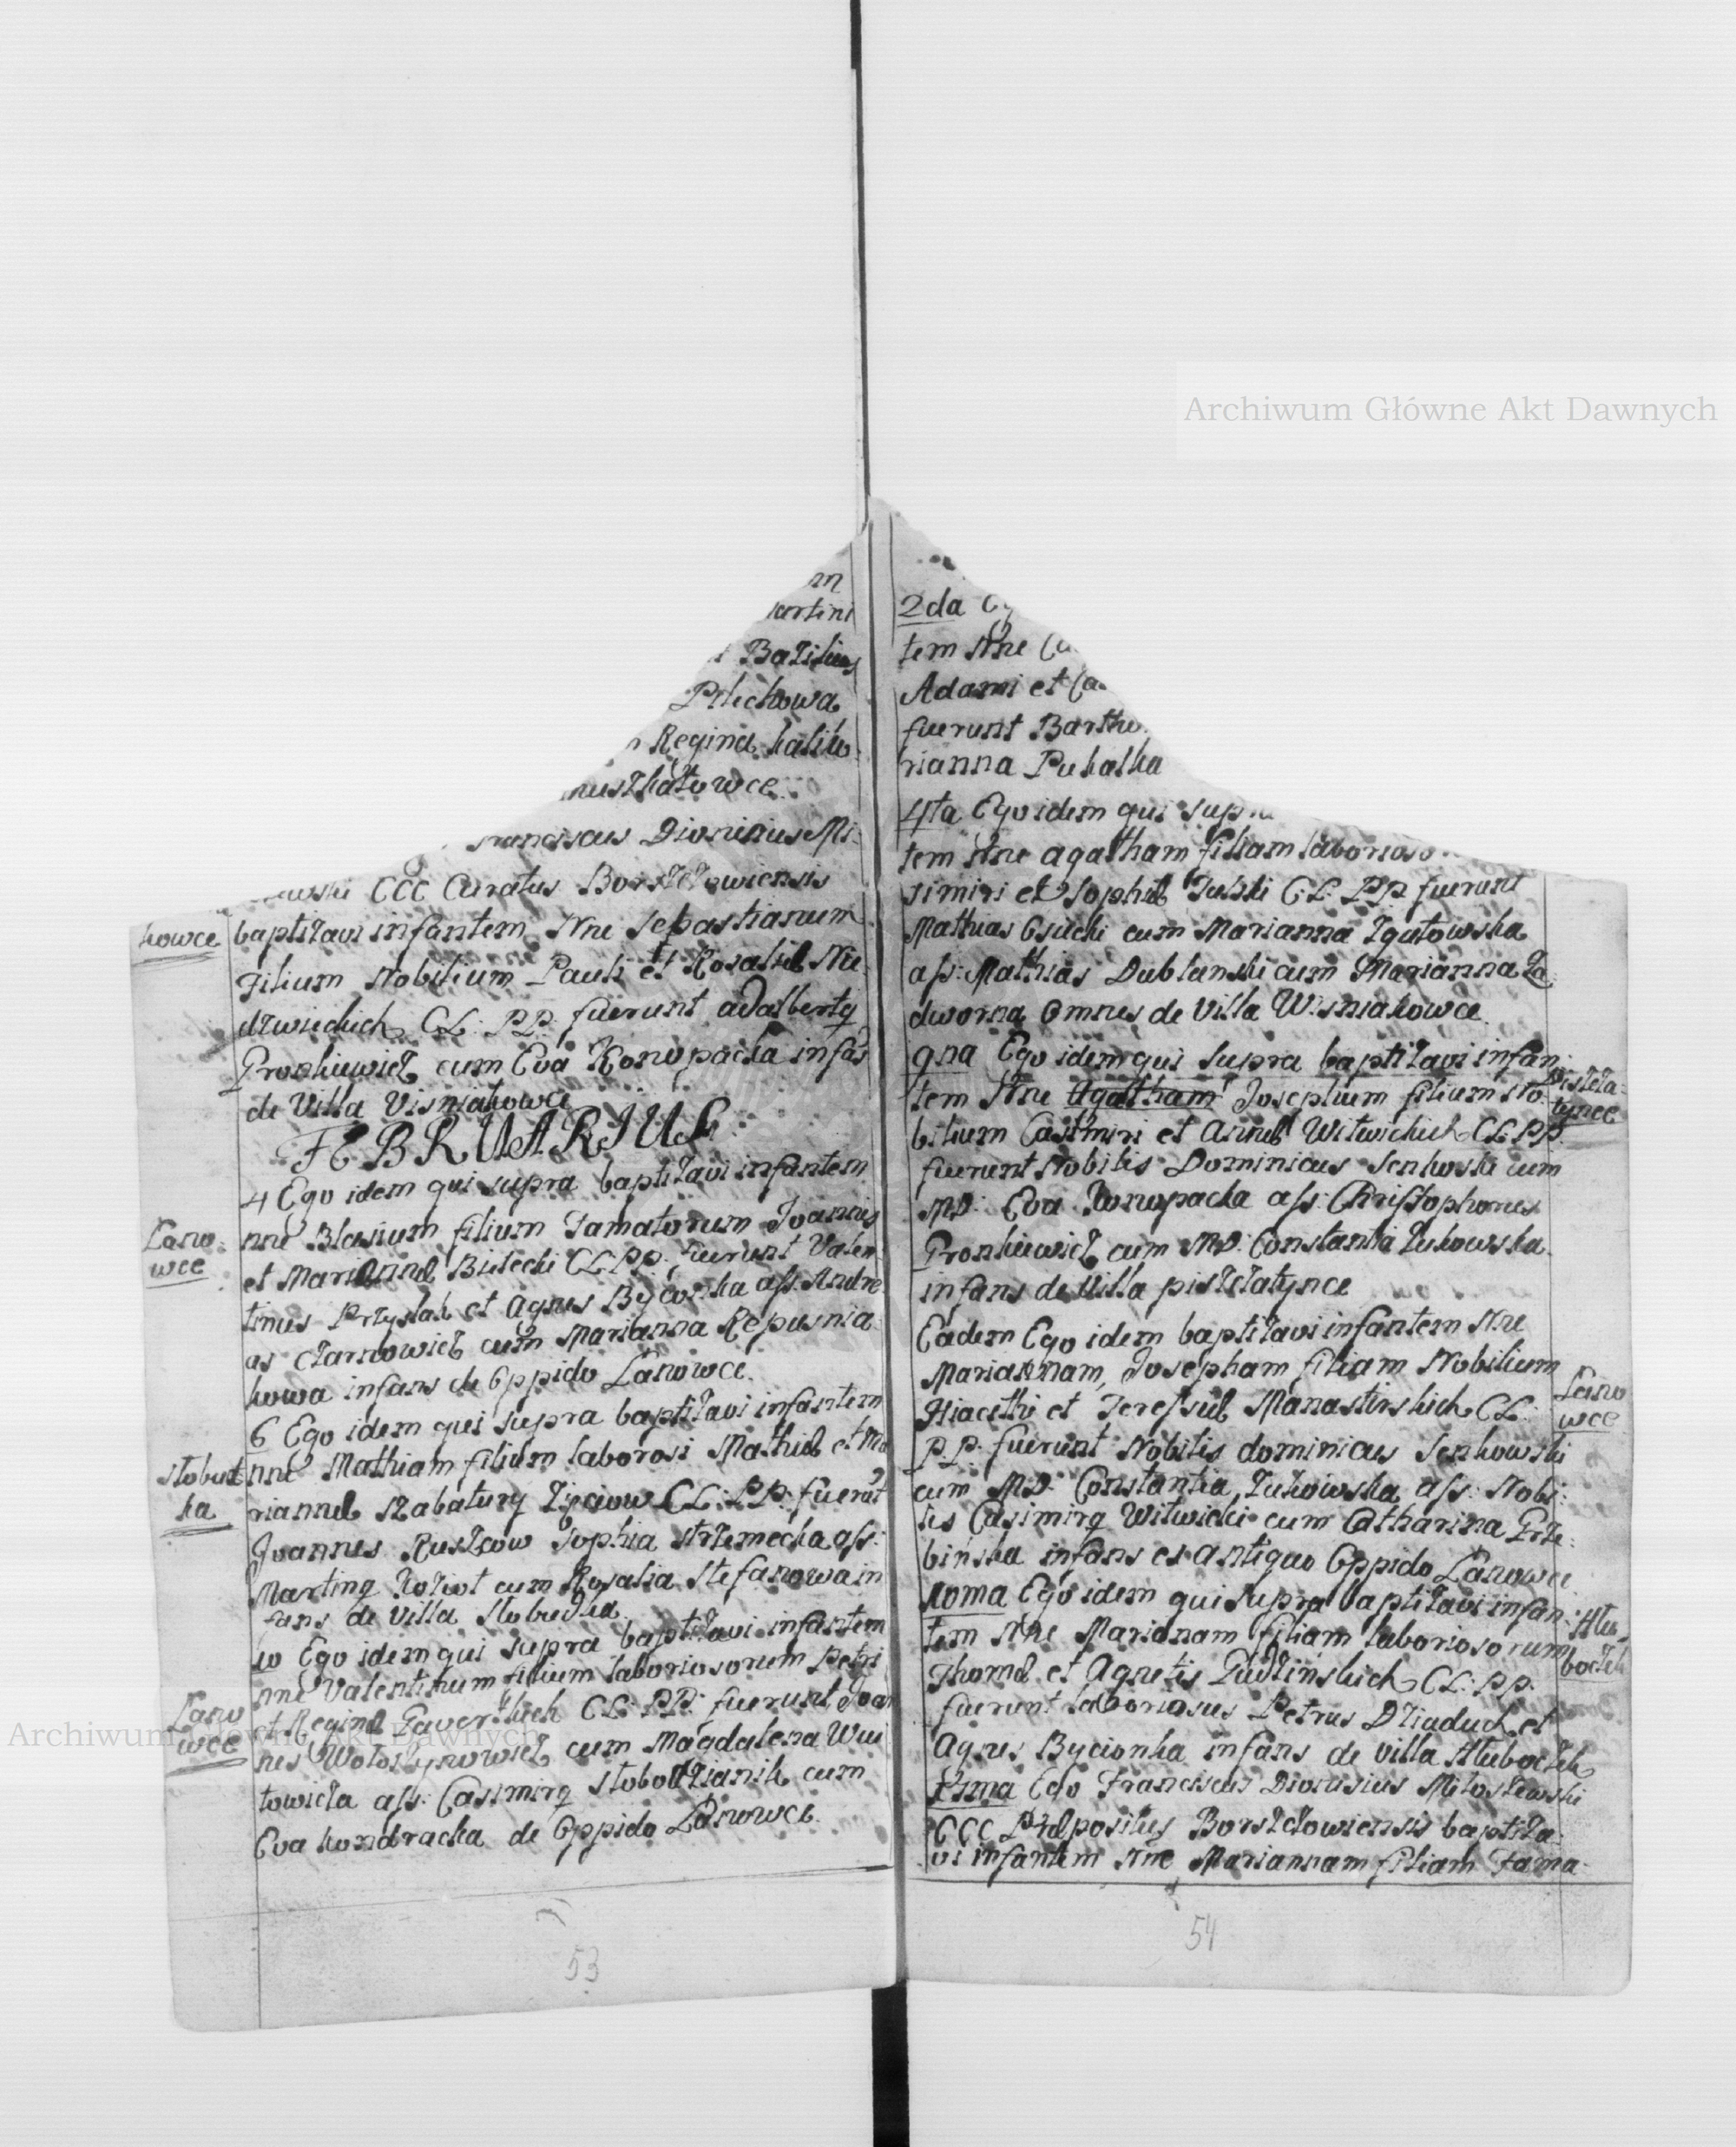 Archiwum Główne Akt Dawnych
Bazilius
Pilichowa
Regina
Franciscus Dionisius Mi:
CCC Curatus Borszczowiensis
howce
baptizavi infantem Nne Sebastianum
Filium Nobilium Pauli et Rosaliæ Nie
dzwieckich CL: PP: fuerunt adalbertq
Pronkiewicz cum Eva Konopacka infās
de Villa Visniakowce
FEBRUARIUS
4 Ego idem qui supra baptizavi infantem
Lano:
wce
nne Blasium filium Famatorum Joannis
et Mariannæ Bilecki CL PP: fuerunt Valen
tinus Przyslak et Agnes Bycorka ass: Andre
as Czarnowicz cum Marianna Repusnia
kowa infans de Oppido Lanowce.
6 Ego idem qui supra baptizavi infantem
Slobud
ka
nne Mathiam filium laborosi Mathiæ et Ma
riannæ Szabatury Zyciow CL: PP: fuerūt
Joannes Ruszcow Sophia Strzemecka ass:
Martinq Koziot cum Rosalia Stefanowa in
fans de Villa Slobudka.
10 Ego idem qui supra baptizavi infantem
Lano
wce
nne Valentinum filium laboriosorum Petri
et Reginæ Gaworskich CL: PP: fuerunt Joan
nes Wolosynowicz cum Magdalena Wui
towicza ass: Casimirq Slobodzianik cum
Eva kondracka de Oppido Lanowce.
53
2da
tem Nne
Adami et
fuerunt
rianna Puhalka
4ta Ego idem qui
tem Nne agatham filiam
simiri et Sophiæ Julski C:L: PP fuerunt
Mathias Gsicki cum Marianna Zgutowska
ass: Mathias Dublanski cum Marianna Za
dworna Omnes de Villa Wisniakowce
9na Ego idem qui supra baptizavi infan:
Pisczta:
tynce
tem Nne Agatham Josephum filium No:
bilium Casimiri et Annæ Witwickich CL PP:
fuerunt Nobilis Dominicus Senkoski cum
MD: Eva Konopacka ass: Christophorus
Pronkiewicz cum MD: Constantia Zukowska
infans de Villa piszczatynce
Eadem Ego idem baptizavi infantem Nne
Mariannam, Josepham filiam Nobilium
Lano
wce
Hiacethi et Teressiæ Manastirskich CL:
P.P: fuerunt Nobilis dominicus Senkowski
cum MD: Constantia Zukowska ass: Nobi:
lis Casimirq Witwicki cum Catharina Grze:
bińska infans ex antiquo Oppido Lanowce
Ego idem qui supra baptizavi infan:
Hlu
boczek
tem Nne Marianam filiam laboriosorum
Thomæ et Agnetis Gudzińskich CL: PP.
fuerunt laboriosus Petrus Dziaduch et
Agnes Bycionka infans de Villa Hluboczek
Ego Franciscus Dionisius Miloszewski
CCC Præpositus Borszczowiensis baptiza
vi infantem Nne Mariannam filiam Fama
54
Archiwum Główne Akt Dawnych